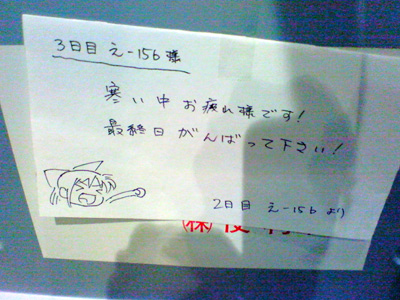 3日目 え-15b 様
寒い中お疲れ様です!
最終日がんばって下さい!
2日目 え-15b より